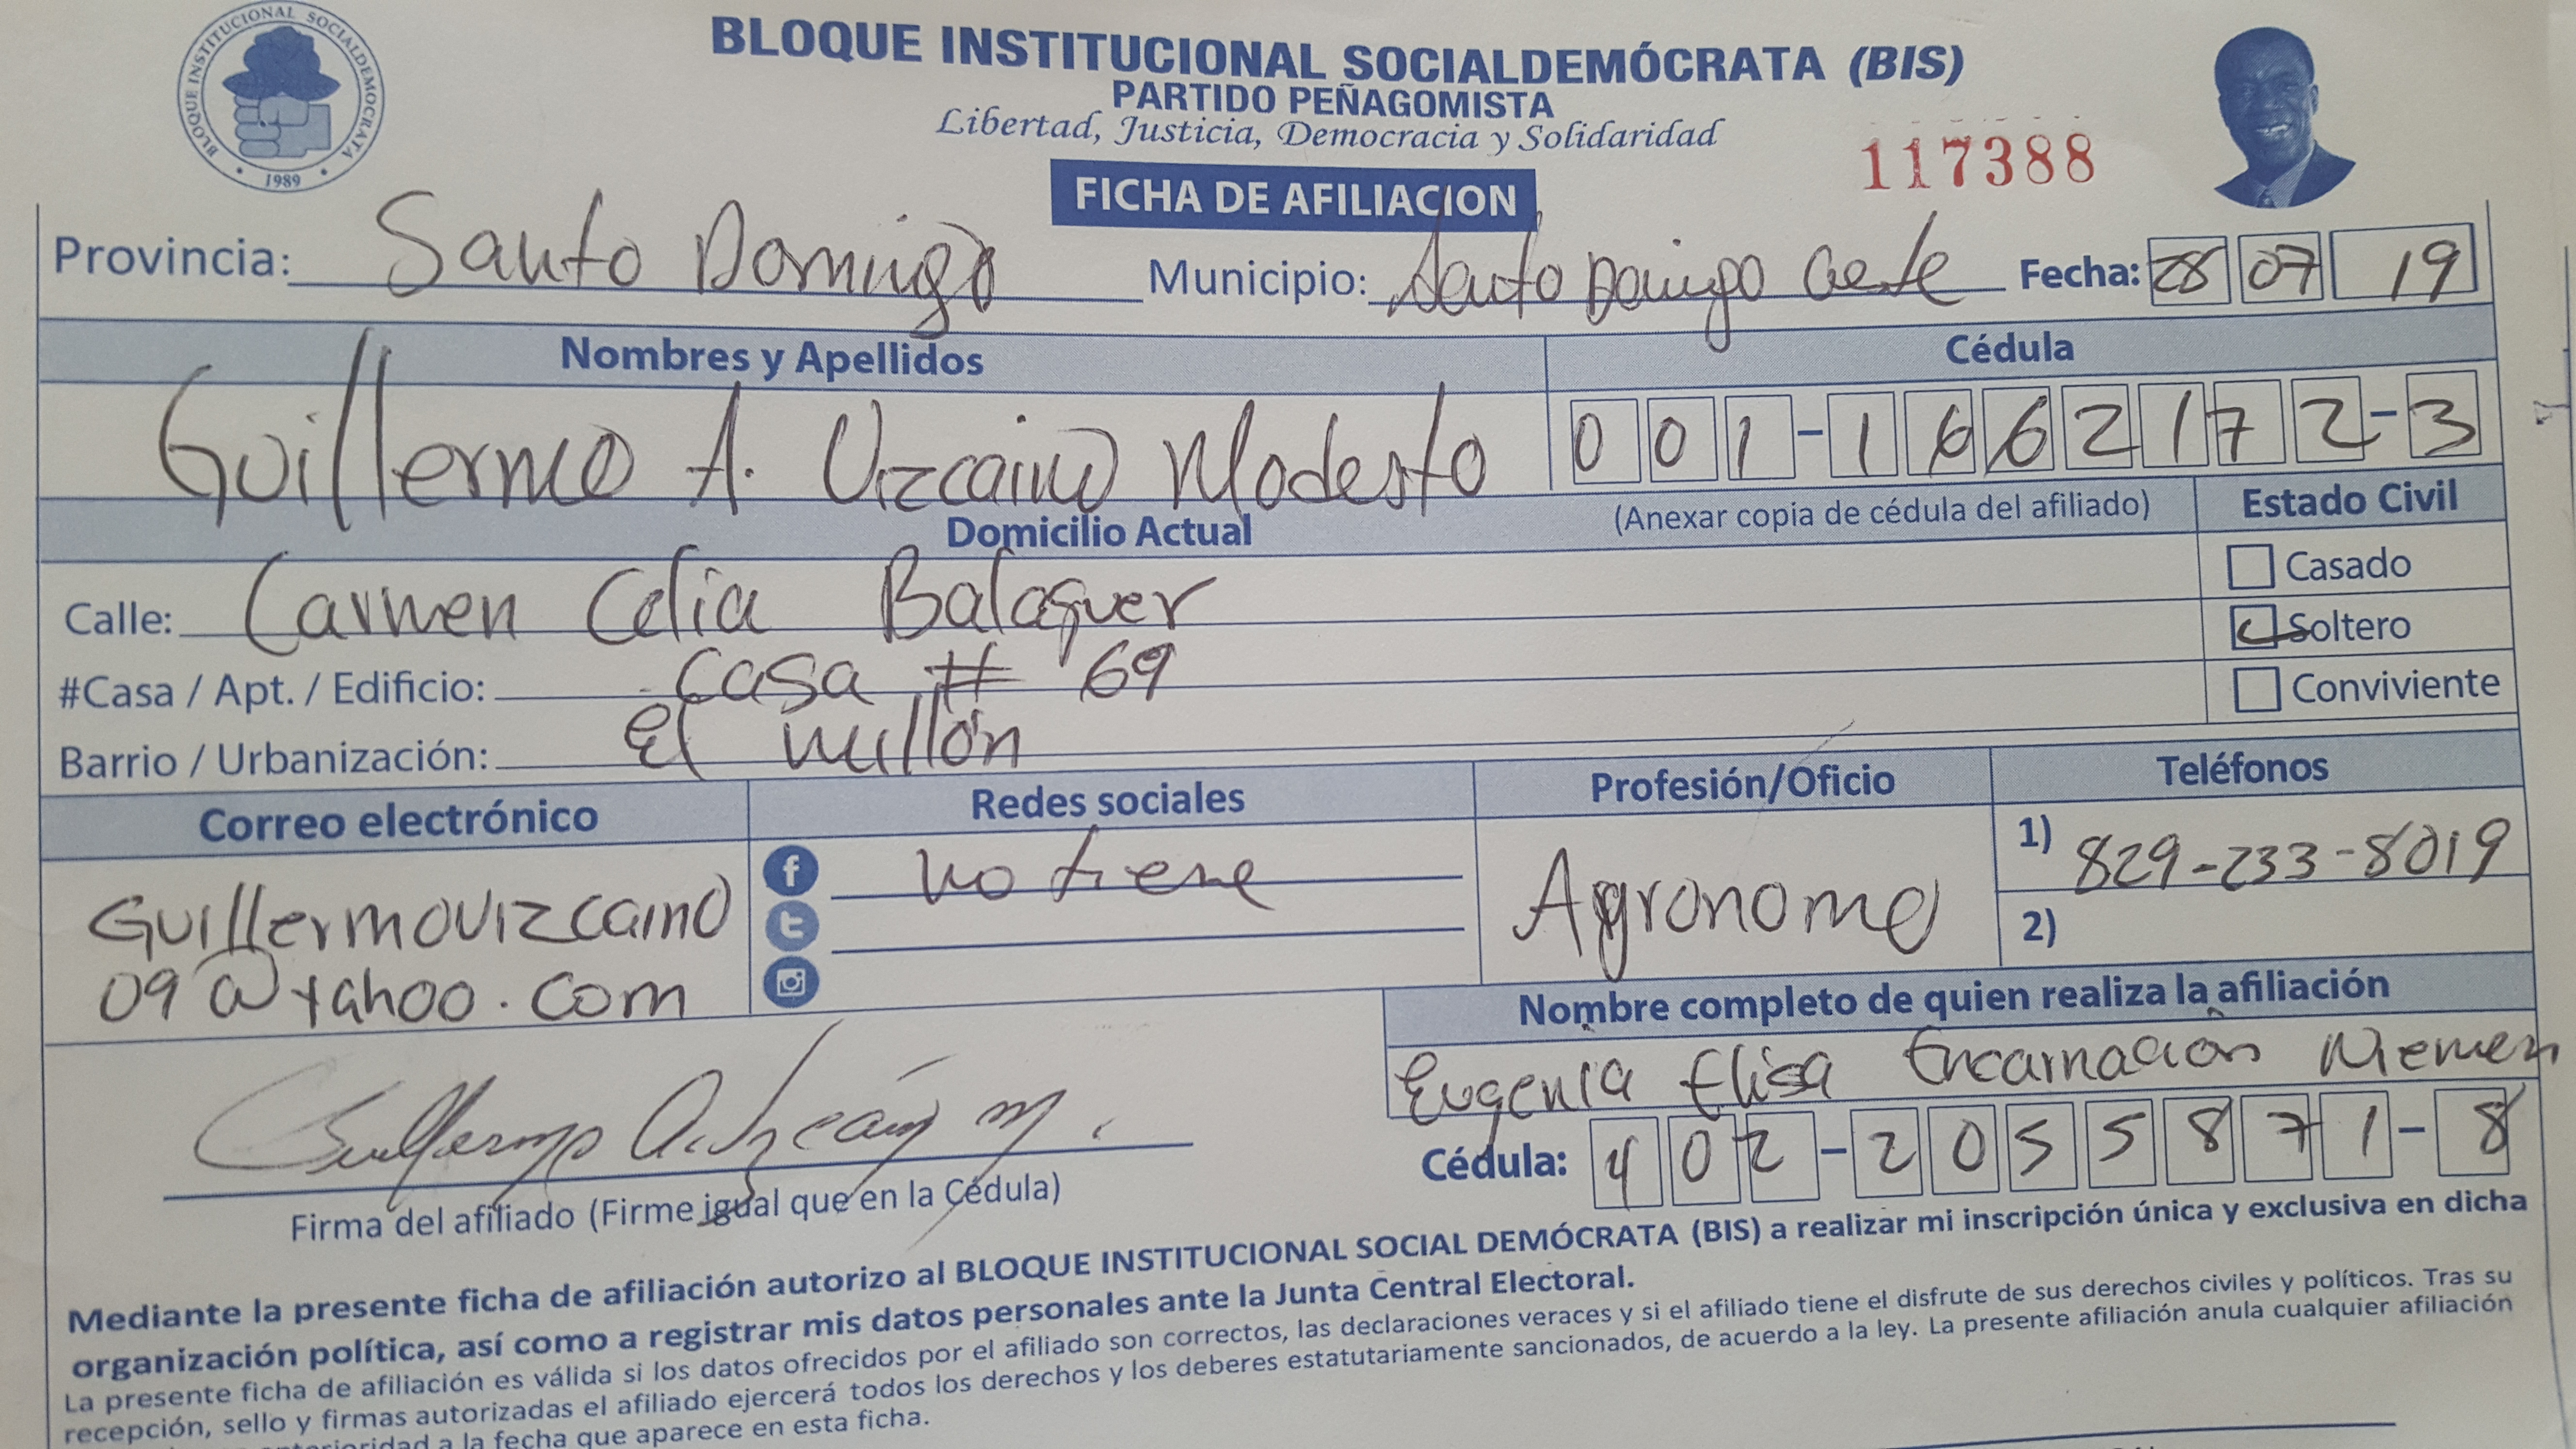 BLOQUE INSTITUCIONAL SOCIALDEMOCRATA
1989
BLOQUE INSTITUCIONAL SOCIALDEMÓCRATA (BIS)
PARTIDO PEÑAGOMISTA
Libertad, Justicia, Democracia y Solidaridad
117388
FICHA DE AFILIACION
Provincia: Santo Domingo Municipio: Santo Domingo Oeste Fecha: 28 07 19
Nombres y Apellidos Cédula
Guillermo A. Vizcaino Modesto 001-1662172-3
Domicilio Actual (Anexar copia de cédula del afiliado) Estado Civil
Casado
Calle: Carmen Celia Balaguer Soltero
#Casa / Apt. / Edificio: Casa # 69 Conviviente
Barrio / Urbanización: El millón
Correo electrónico Redes sociales Profesión/Oficio Teléfonos
Guillermovizcaino no tiene Agronomo 1) 829-233-8019
09@yahoo.com 2)
Nombre completo de quien realiza la afiliación
Eugenia Elisa Encarnación
Cédula: 402-2055871-8
Firma del afiliado (Firme igual que en la Cédula)
Mediante la presente ficha de afiliación autorizo al BLOQUE INSTITUCIONAL SOCIAL DEMÓCRATA (BIS) a realizar mi inscripción única y exclusiva en dicha
organización política, así como a registrar mis datos personales ante la Junta Central Electoral.
La presente ficha de afiliación es válida si los datos ofrecidos por el afiliado son correctos, las declaraciones veraces y si el afiliado tiene el disfrute de sus derechos civiles y políticos. Tras su
recepción, sello y firmas autorizadas el afiliado ejercerá todos los derechos y los deberes estatutariamente sancionados, de acuerdo a la ley. La presente afiliación anula cualquier afiliación
a la fecha que aparece en esta ficha.